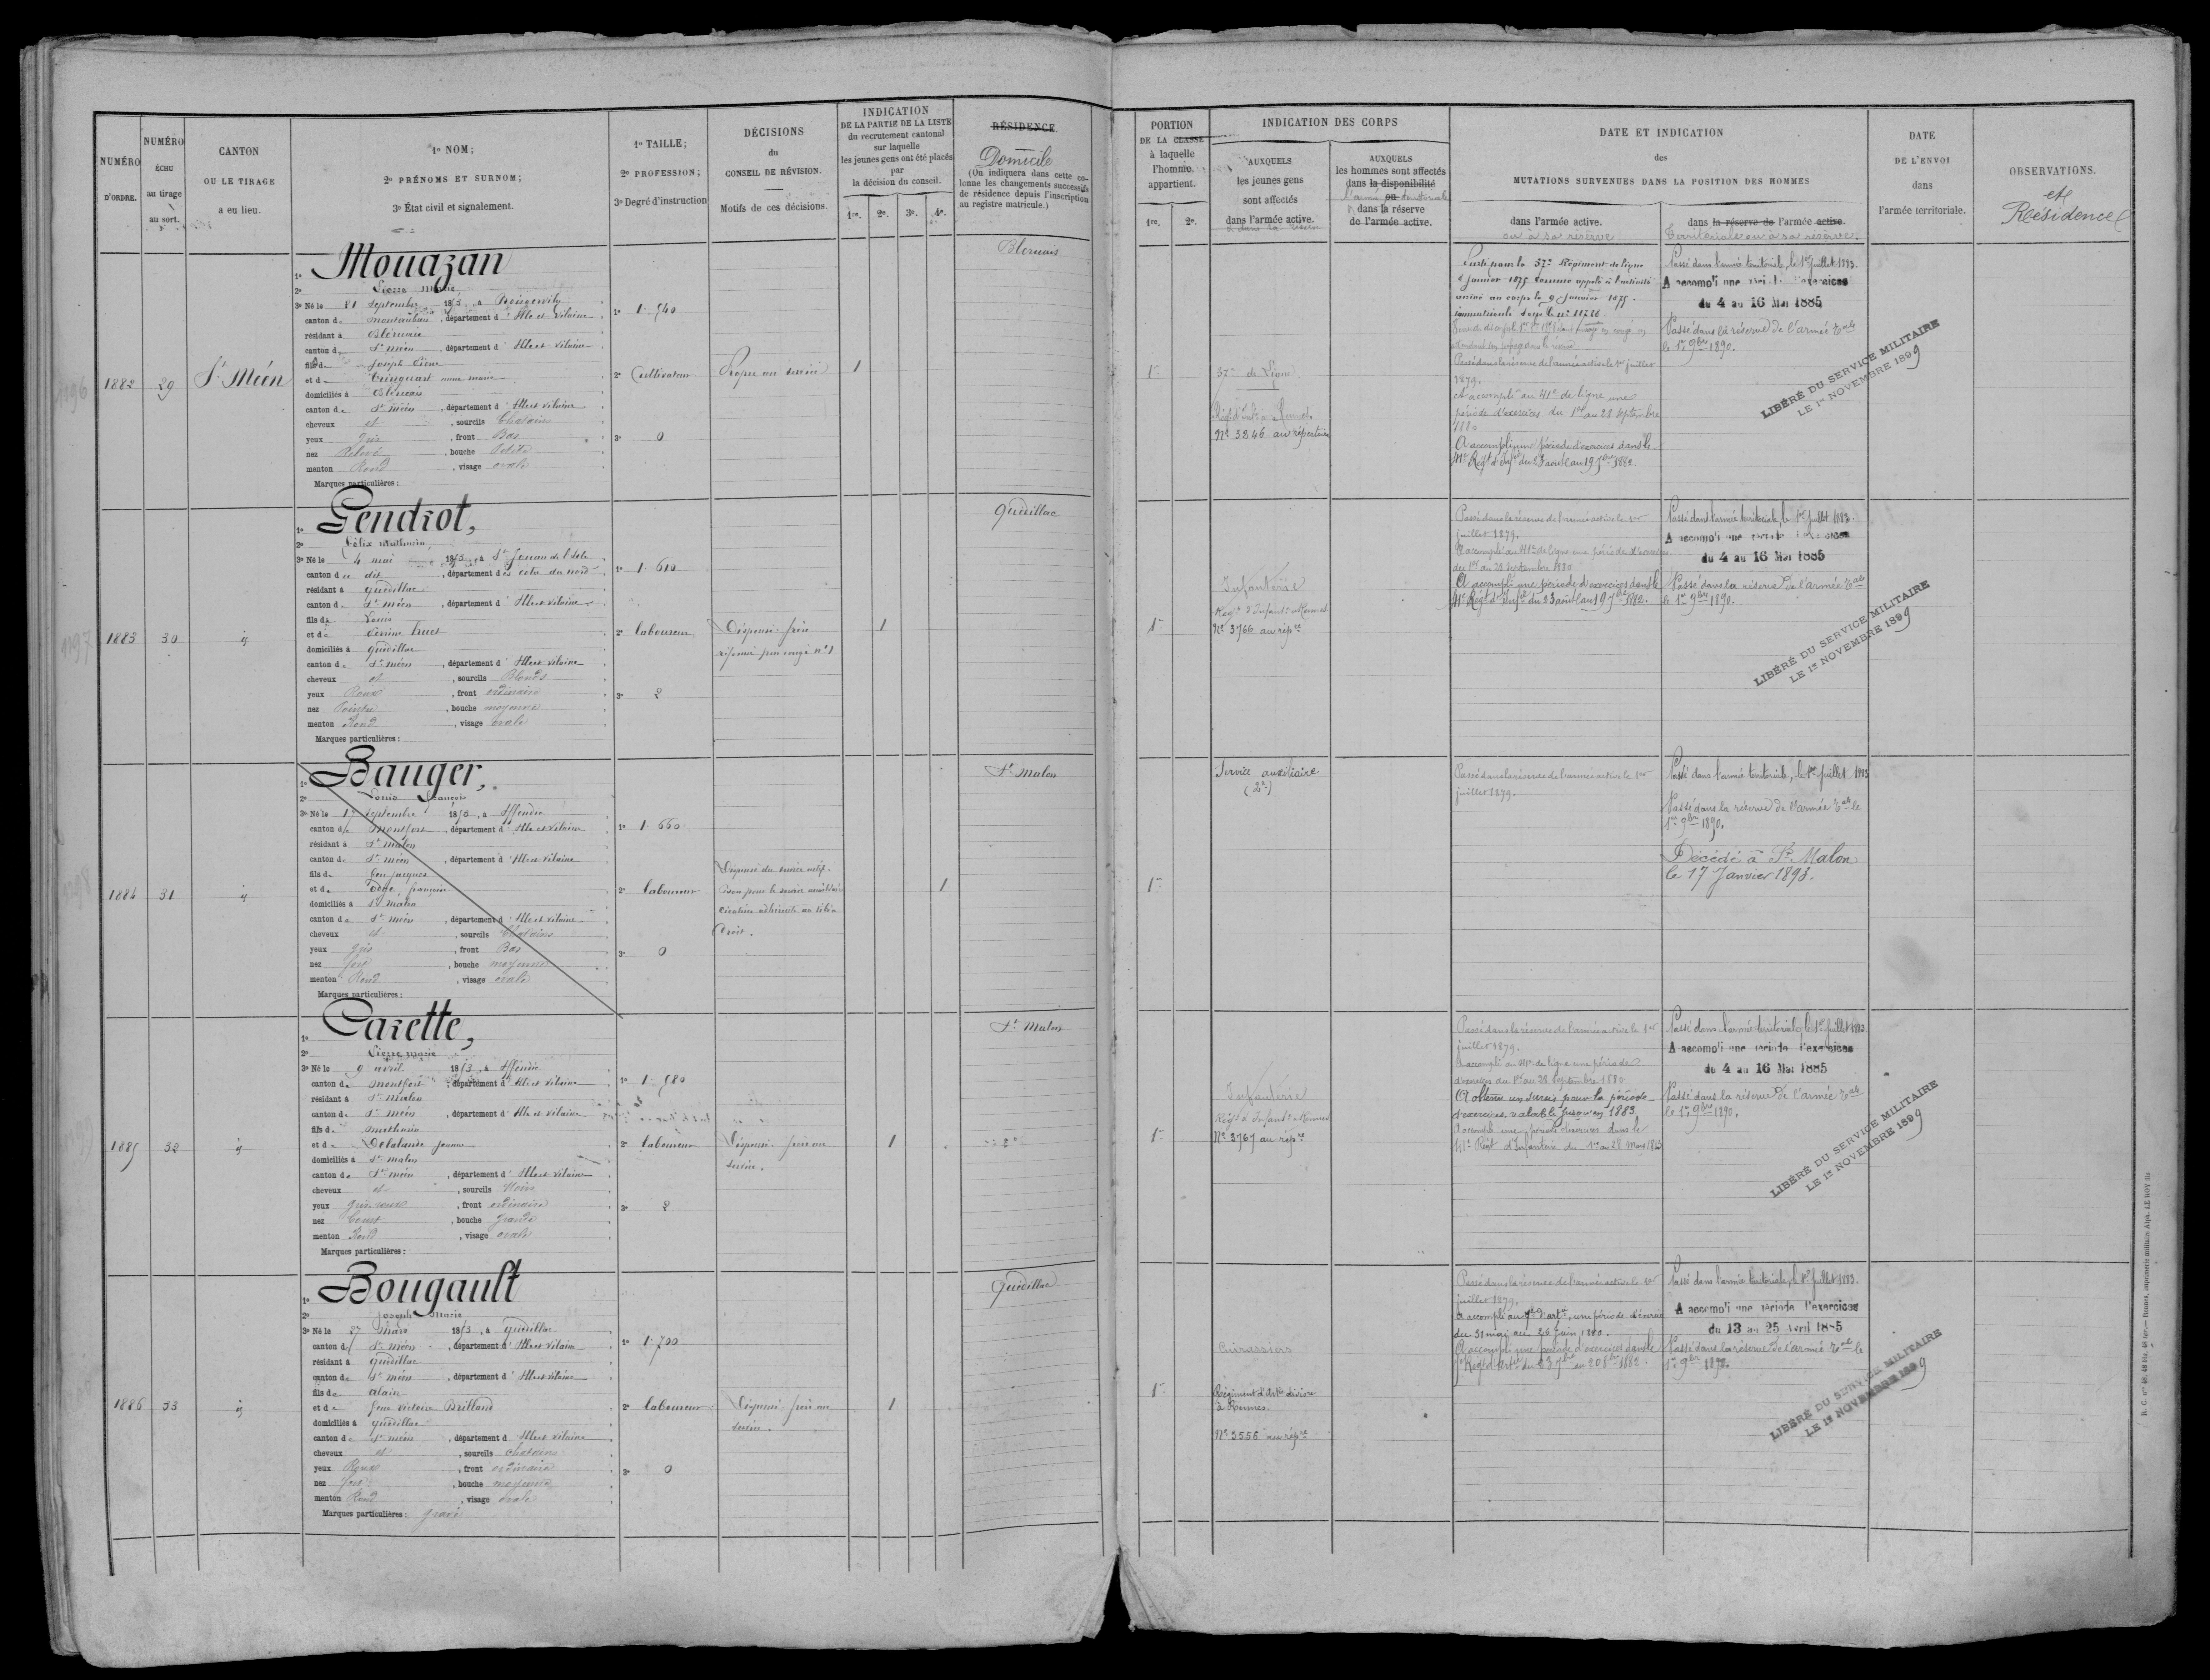 NUMÉRO
D'ORDRE.
NUMÉRO
ÉCHU
au tirage
au sort.
CANTON
OU LE TIRAGE
a eu lieu.
1º NOM;
2º PRÉNOMS ET SURNOM;
3º État civil et signalement.
1º TAILLE;
2º PROFESSION;
3º Degré d'instruction
DÉCISIONS
du
CONSEIL DE RÉVISION.
Motifs de ces décisions.
INDICATION
DE LA PARTIE DE LA LISTE
du recrutement cantonal
sur laquelle
les jeunes gens ont été placés
par
la décision du conseil.
1re. 2e. 3e. 4e.
RÉSIDENCE
Domicile
(On indiquera dans cette co-
lonne les changements successifs
de résidence depuis l'inscription
au registre matricule.)
PORTION
DE LA CLASSE
à laquelle
l'homme
appartient.
1re. 2e.
INDICATION DES CORPS
AUXQUELS
les jeunes gens
sont affectés
dans l'armée active.
& dans la réserve
AUXQUELS
les hommes sont affectés
dans la disponibilité
l'armée ou territoriale
dans la réserve
de l'armée active.
DATE ET INDICATION
des
MUTATIONS SURVENUES DANS LA POSITION DES HOMMES
dans l'armée active.
ou à sa réserve
dans la réserve de l'armée active.
territoriale ou à sa réserve.
DATE
DE L'ENVOI
dans
l'armée territoriale.
OBSERVATIONS.
et
Résidence
1882
29
St Méen
1º Mouazan
2º Pierre Marie
3º Né le 21 septembre 1853, à Boisgervily
canton de Montauban, département d'Ille et Vilaine
résidant à Bléruais
canton de St méen, département d'Ille et Vilaine
fils de Joseph Pierre
et de Trinquart anne marie
domiciliés à Bléruais
canton de St méen, département d'Ille et Vilaine
cheveux et, sourcils Chatains
yeux gris, front Bas
nez Relevé, bouche Petite
menton Rond, visage ovale
Marques particulières:
1º 1.540
2º Cultivateur
3º 0
Propre au service
1
Bleruais
1re
37e de Ligne
Régt d'Infie à Rennes
Nº 3246 au répertoire
Parti pour le 37e Régiment de ligne
Janvier 1875 comme appelé à l'activité
arrivé au corps le 9 Janvier 1875.
immatriculé sous le nº 11726
Passé dans la réserve de l'armée active le 1er juillet
1879.
et accompli au 41e de ligne une
période d'exercices du 1er au 28 septembre
1880
A accompli une période d'exercices dans le
41e Régt d'Infie du 23 août au 19 7bre 1882.
Passé dans l'armée territoriale, le 1er juillet 1883.
A accompli une période d'exercices
du 4 au 16 Mai 1885
Passé dans la réserve de l'armée Tale
le 1er 9bre 1890.
LIBÉRÉ DU SERVICE MILITAIRE
LE 1er NOVEMBRE 1899
1883
30
id
1º Gendrot,
2º Félix mathurin,
3º Né le 4 mai 1853, à St Jouan de l'Isle
canton de dit, département des côtes du nord
résidant à quédillac
canton de St méen, département d'Ille et Vilaine
fils de Louis
et de Perrine Lucet
domiciliés à quédillac
canton de St méen, département d'Ille et Vilaine
cheveux et, sourcils Blonds
yeux Roux, front ordinaire
nez Pointu, bouche moyenne
menton Rond, visage ovale
Marques particulières:
1º 1.610
2º laboureur
3º 2
Dispensé. frère
réformé par congé nº 1
1
quédillac
1re
Infanterie
Régt d'Infantie à Rennes
Nº 3766 au répre
Passé dans la réserve de l'armée active le 1er
juillet 1879.
A accompli au 41e de ligne une période d'exercices
du 1er au 28 septembre 1880
A accompli une période d'exercices dans le
41e Régt d'Infie du 23 août au 19 7bre 1882.
Passé dans l'armée territoriale, le 1er juillet 1883.
A accompli une période d'exercices
du 4 au 16 Mai 1885
Passé dans la réserve de l'armée Tale
le 1er 9bre 1890.
LIBÉRÉ DU SERVICE MILITAIRE
LE 1er NOVEMBRE 1899
1884
31
id
1º Bauger,
2º Louis François
3º Né le 17 septembre 1853, à Iffendic
canton de Montfort, département d'Ille et Vilaine
résidant à St malon
canton de St méen, département d'Ille et Vilaine
fils de feu jacques
et de françoise
domiciliés à St malon
canton de St méen, département d'Ille et Vilaine
cheveux et, sourcils Chatains
yeux gris, front Bas
nez fort, bouche moyenne
menton Rond, visage ovale
Marques particulières:
1º 1.660
2º laboureur
3º 0
Dispensé du service actif.
bon pour le service auxiliaire
cicatrice adhérente au tibia
droit.
1
St Malon
1re
Service auxiliaire
Passé dans la réserve de l'armée active le 1er
juillet 1879.
Passé dans l'armée territoriale, le 1er juillet 1883
Passé dans la réserve de l'armée Tale le
1er 9bre 1890.
Décédé à St Malon
le 17 Janvier 1893.
1885
32
id
1º Carette,
2º Pierre marie
3º Né le 9 avril 1853, à Iffendic
canton de Montfort, département d'Ille et Vilaine
résidant à St Malon
canton de St méen, département d'Ille et Vilaine
fils de mathurin
et de Delalande Jeanne
domiciliés à St malon
canton de St méen, département d'Ille et Vilaine
cheveux et, sourcils Noirs
yeux gris roux, front ordinaire
nez Court, bouche grande
menton Rond, visage ovale
Marques particulières:
1º 1.580
2º laboureur
3º 2
Dispensé. frère au
service.
1
St Malon
1re
Infanterie
Régt d'Infantie à Rennes
Nº 3767 au répre
Passé dans la réserve de l'armée active le 1er
juillet 1879.
A accompli au 41e de ligne une période
d'exercices du 1er au 28 septembre 1880
A obtenu un sursis pour la période
d'exercices, valable jusqu'en 1883.
A accompli une période d'exercices dans le
41e Régt d'Infanterie du 1er au 28 Mars 1883
Passé dans l'armée territoriale, le 1er juillet 1883
A accompli une période d'exercices
du 4 au 16 Mai 1885
Passé dans la réserve de l'armée Tale
le 1er 9bre 1890.
LIBÉRÉ DU SERVICE MILITAIRE
LE 1er NOVEMBRE 1899
1886
33
id
1º Bougault
2º Joseph Marie
3º Né le 27 Mars 1853, à quédillac
canton de St méen, département d'Ille et Vilaine
résidant à quédillac
canton de St méen, département d'Ille et Vilaine
fils de alain
et de feue Victoire Brilland
domiciliés à quédillac
canton de St méen, département d'Ille et Vilaine
cheveux et, sourcils chatains
yeux Roux, front ordinaire
nez fort, bouche moyenne
menton Rond, visage ovale
Marques particulières: gravé
1º 1.700
2º laboureur
3º 0
Dispensé frère au
service.
1
Quédillac
1re
Cuirassiers
Régiment d'Artie divisre
à Rennes.
Nº 3556 au répre
Passé dans la réserve de l'armée active le 1er
juillet 1879.
A accompli au 7e d'artie, une période d'exercices
du 31 mai au 26 juin 1880.
A accompli une période d'exercices dans le
7e Régt d'Artie du 23 7bre au 20 8bre 1882.
Passé dans l'armée territoriale, le 1er juillet 1883.
A accompli une période d'exercices
du 13 au 25 Avril 1885
Passé dans la réserve de l'armée Tale le
1er 9bre 1890.
LIBÉRÉ DU SERVICE MILITAIRE
LE 1er NOVEMBRE 1899
1196
1197
1198